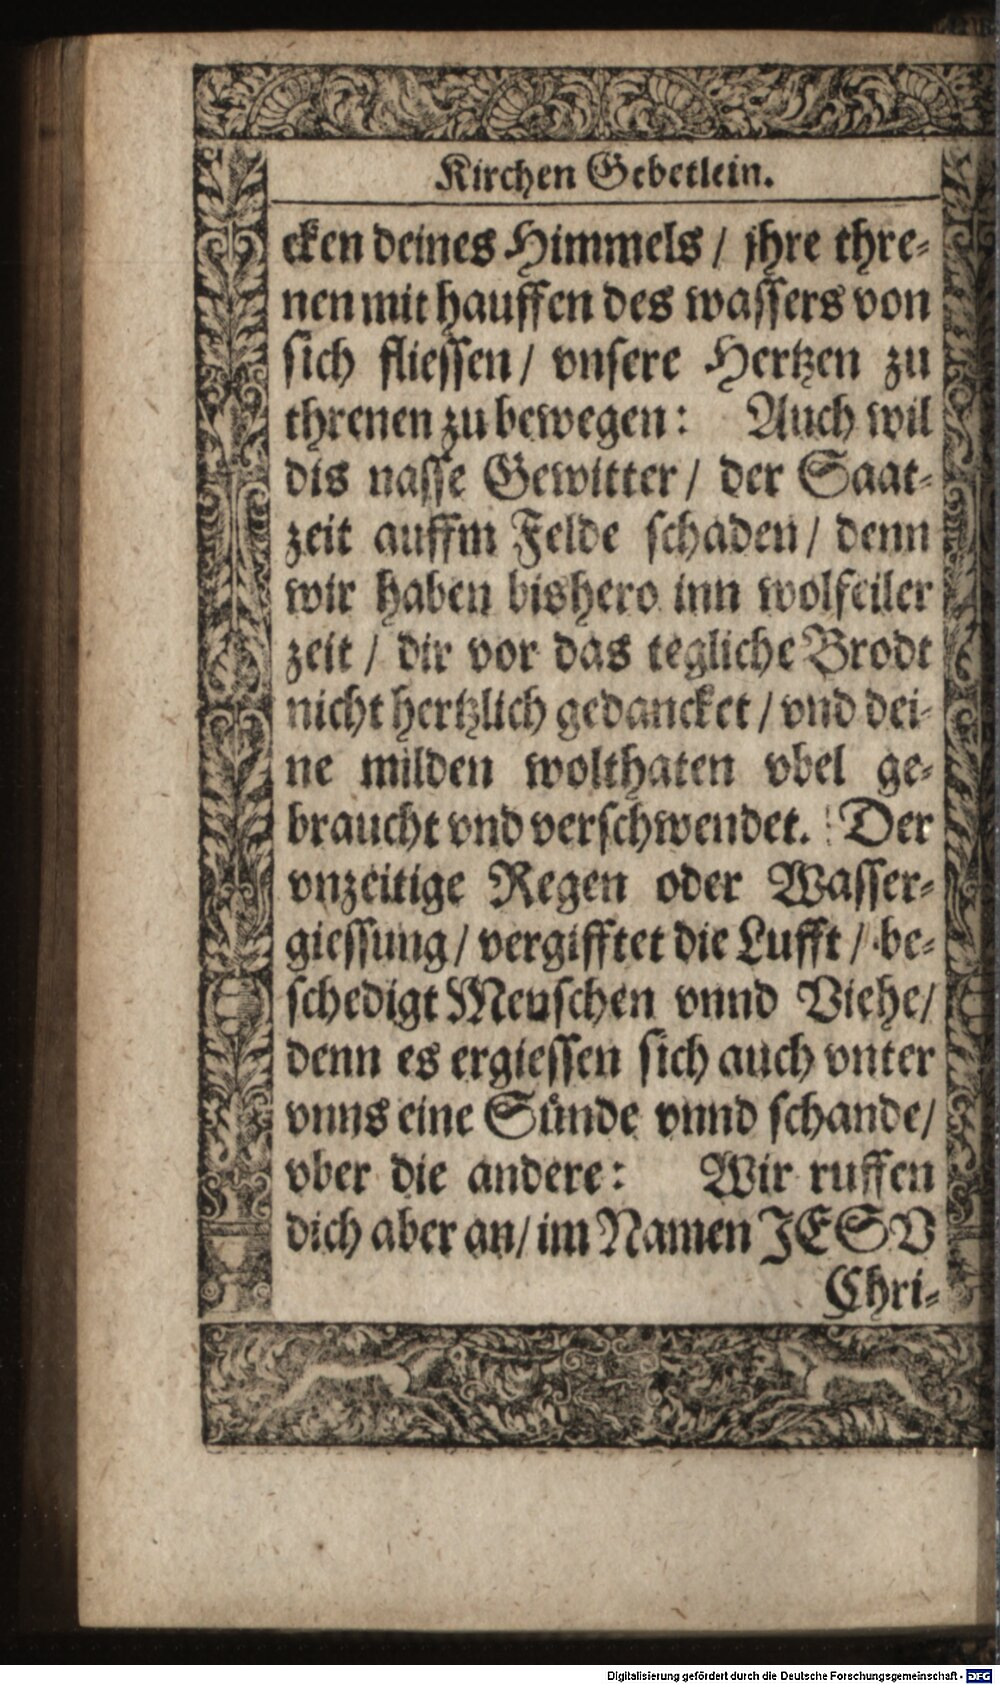 Kirchen Gebetlein.
cken deines Himmels / jhre thre-
nen mit hauffen des wassers von
sich fliessen / vnsere Hertzen zu
threnen zu bewegen: Auch wil
dis nasse Gewitter / der Saat-
zeit auffm Felde schaden / denn
wir haben bishero inn wolfeiler
zeit / dir vor das tegliche Brodt
nicht hertzlich gedancket / vnd dei-
ne milden wolthaten vbel ge-
braucht vnd verschwendet. Der
vnzeitige Regen oder Wasser-
giessung / vergifftet die Lufft / be-
schedigt Menschen vnnd Viehe /
denn es ergiessen sich auch vnter
vnns eine Sünde vnnd schande /
vber die andere: Wir ruffen
dich aber an / im Namen JESV
Chri-
Digitalisierung gefördert durch die Deutsche Forschungsgemeinschaft - DFG